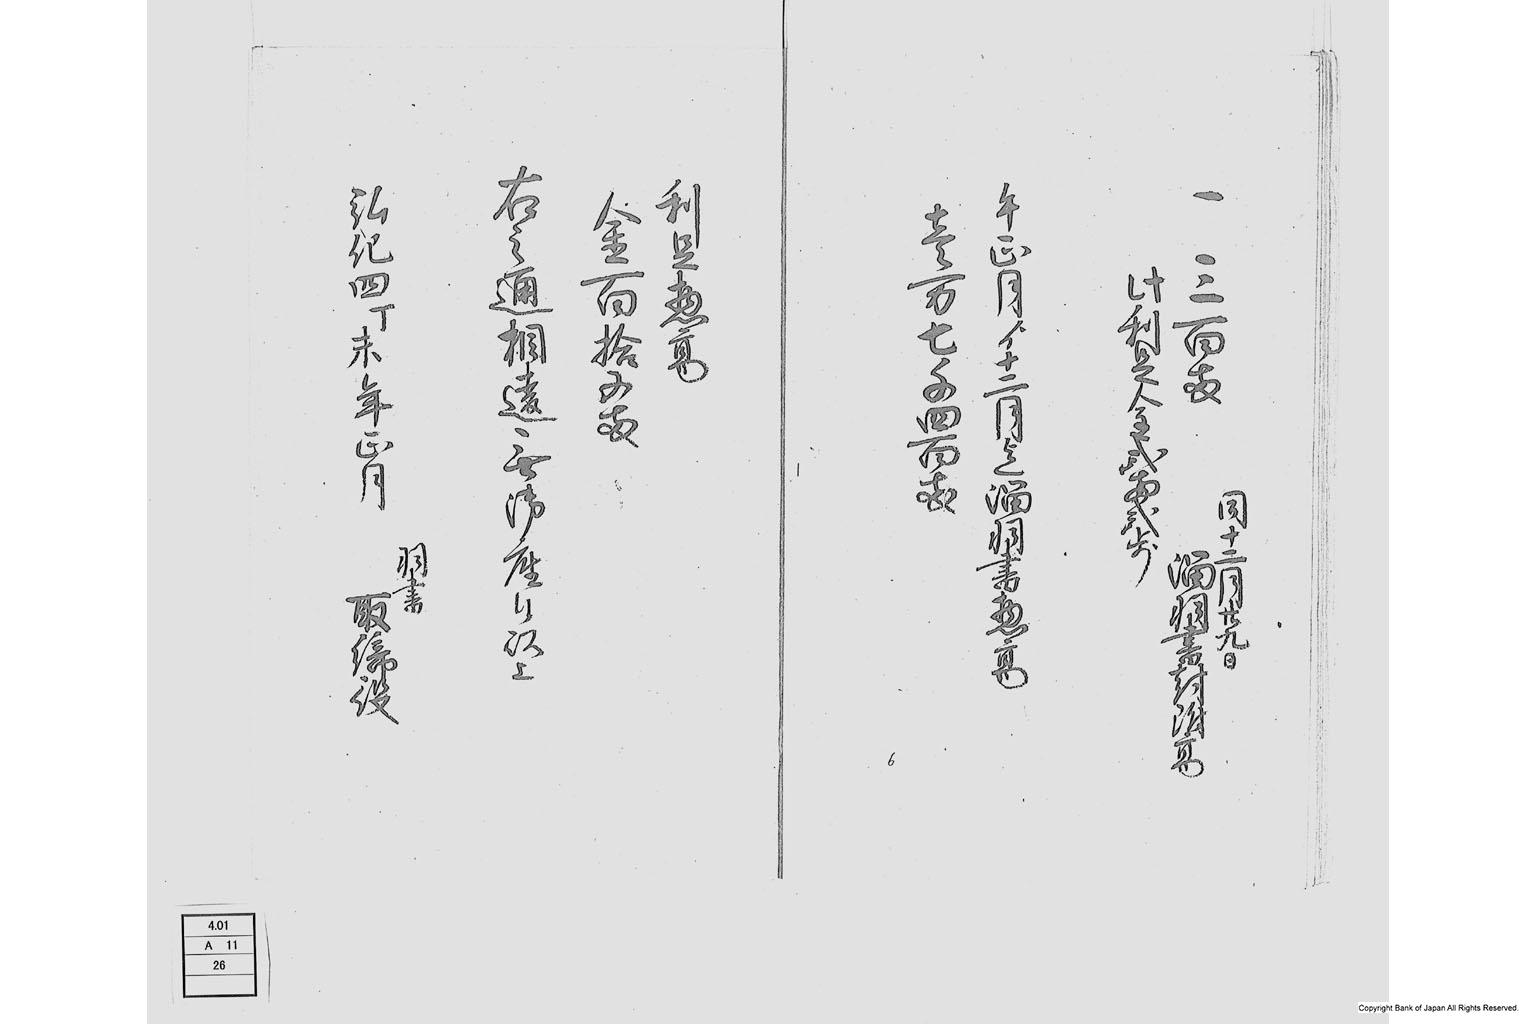 同十二月廿九日
溜羽書封高
一 三百両
此利足金弐両弐歩
午正月ゟ十二月迄溜羽書惣高
壱万七千四百両
6
利足惣高
金百拾五両
右之通相違無御座候以上
弘化四丁未年正月
羽書
取締役
4.01
A 11
26
Copyright Bank of Japan All Rights Reserved.